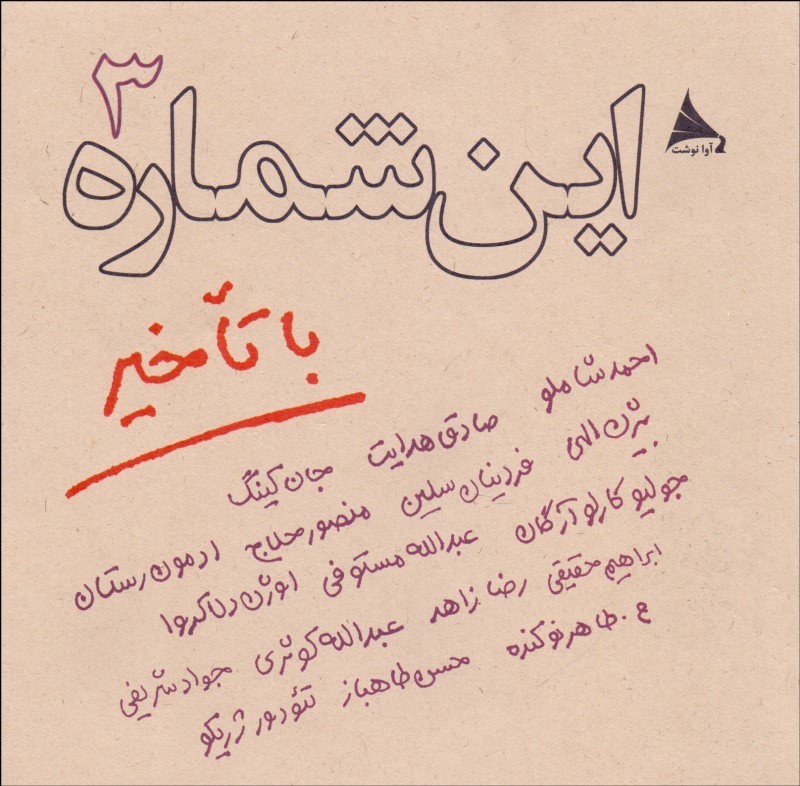 ۳
این شماره
آوا نوشت
با تأخیر
احمد شاملو صادق هدایت جان کینگ
بیژن الهی فردینان سلین منصور حلاج ادمون رستان
جولیو کارلو آرگان عبدالله مستوفی اوژن دلاکروا
ابراهیم حقیقی رضا زاهد عبدالله کوثری جواد شریفی
ع. طاهر نوکنده محسن طاهباز تئودور ژریکو